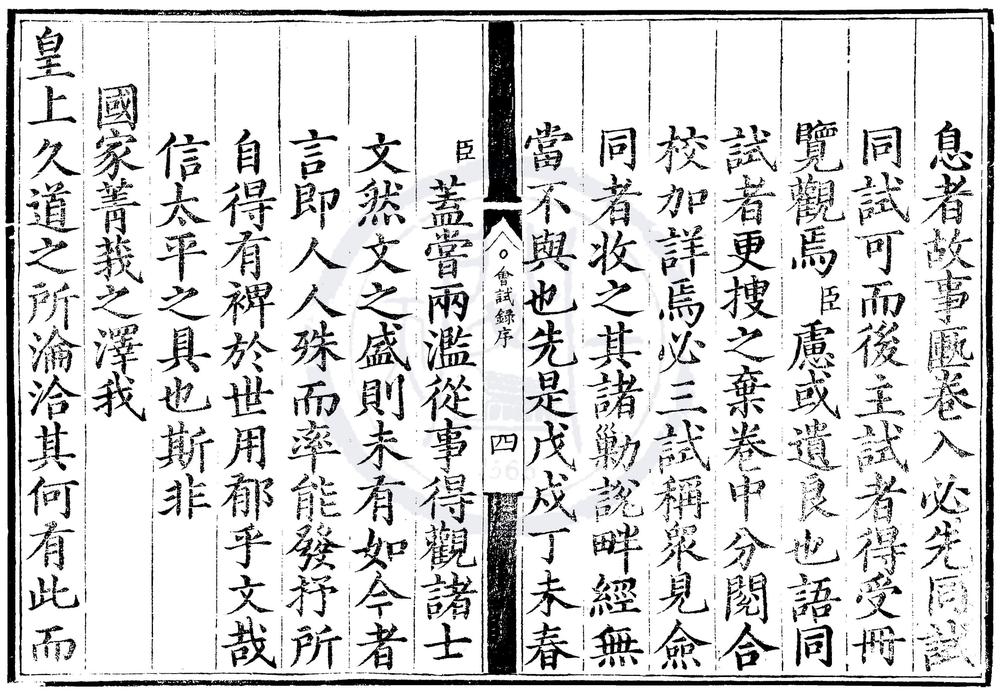 息者故事匭卷入必先同試
同試可而後主試者得受冊
覽觀焉臣慮或遺良也語同
試者更搜之棄卷中分閱合
校加詳焉必三試稱衆見僉
同者收之其諸勦說畔經無
當不與也先是戊戌丁未春
會試錄序 四
臣蓋嘗兩濫從事得觀諸士
文然文之盛則未有如今者
言即人人殊而率能發抒所
自得有裨於世用郁乎文哉
信太平之具也斯非
國家菁莪之澤我
皇上久道之所淪洽其何有此而